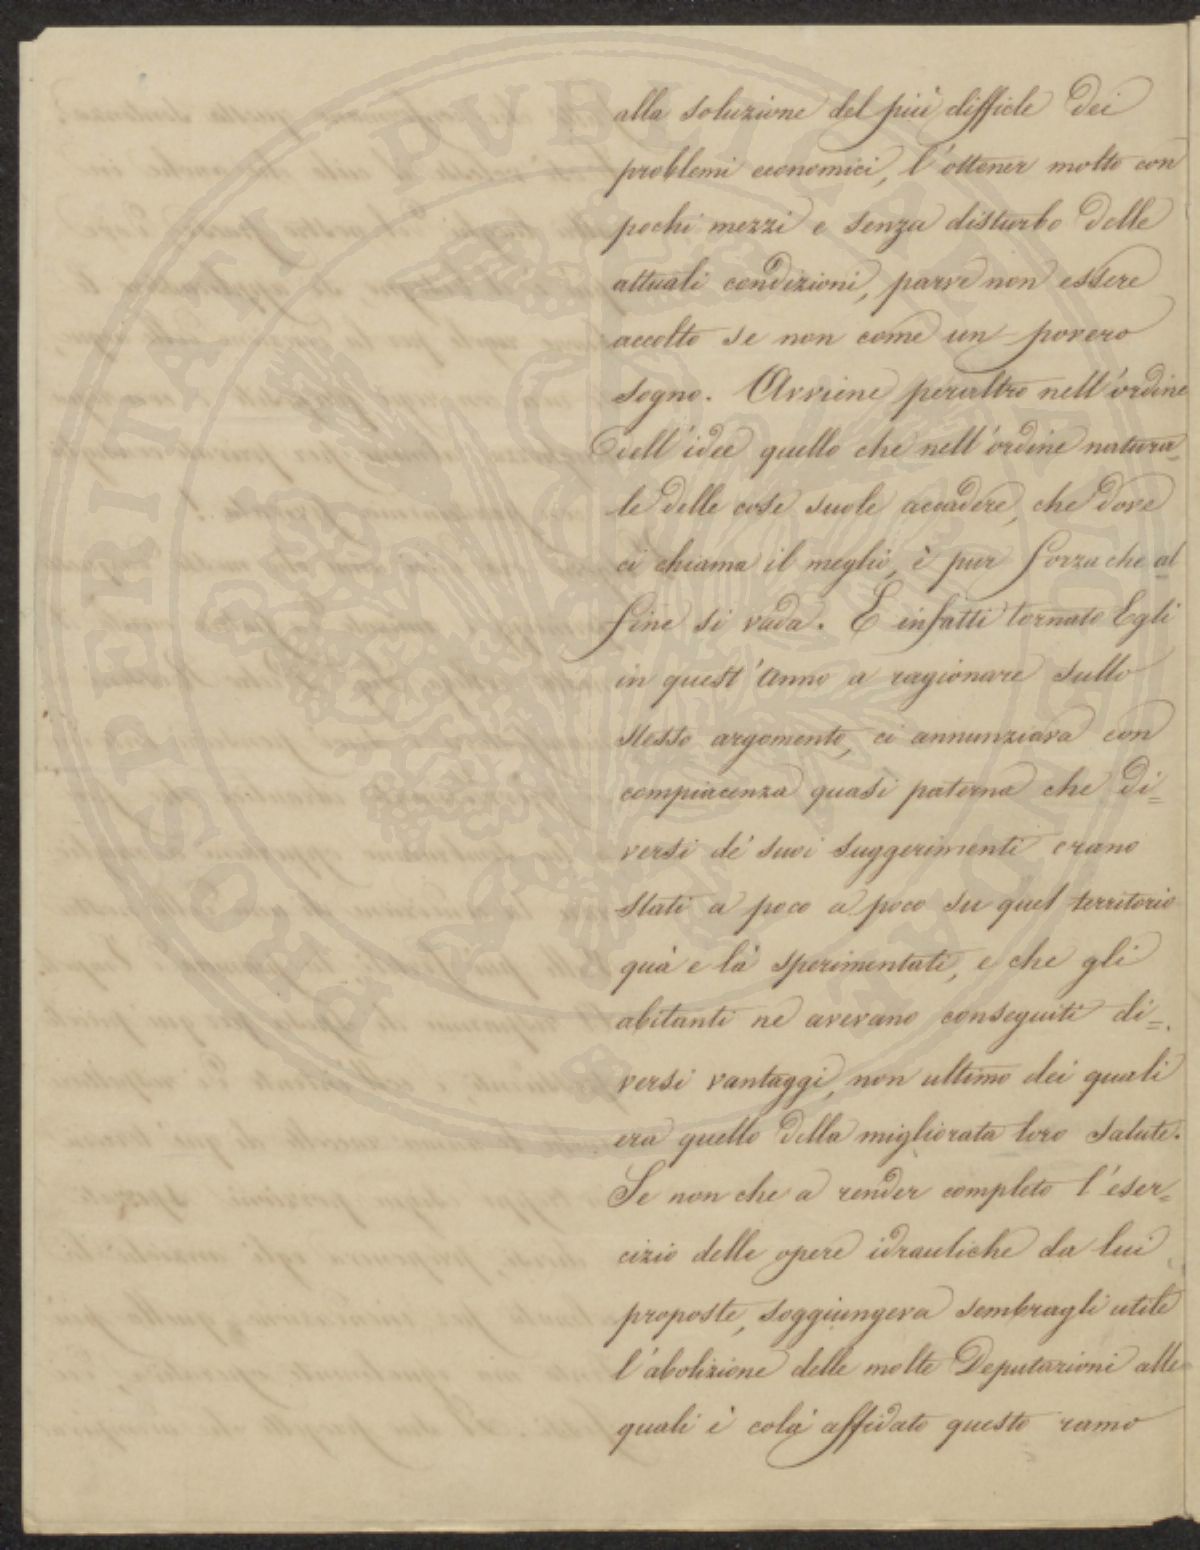 alla soluzione del più difficile dei
problemi economici, l'ottener molto con
pochi mezzi e senza disturbo delle
attuali condizioni, parve non essere
accolto se non come un povero
sogno. Avviene peraltro nell'ordine
dell'idee quello che nell'ordine natura=
le delle cose suole accadere, che dove
ci chiama il meglio, è pur forza che al
fine si vada. E infatti tornato Egli
in quest'anno a ragionare sullo
stesso argomento, ci annunziava con
compiacenza quasi paterna che di=
versi de' suoi suggerimenti erano
stati a poco a poco su quel territorio
quà e là sperimentati, e che gli
abitanti ne avevano conseguiti di=
versi vantaggi, non ultimo dei quali
era quello della migliorata loro salute.
Se non che a render completo l'eser=
cizio delle opere idrauliche da lui
proposte, soggiungeva sembragli utile
l'abolizione delle molte Deputazioni alle
quali è colà affidato questo ramo
PROSPERITATI PVBLICAE